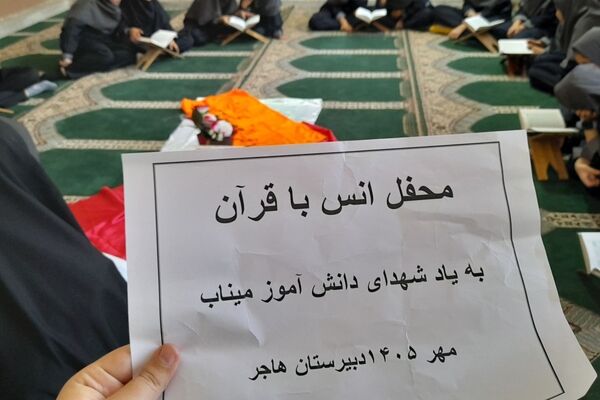 محفل انس با قرآن
به یاد شهدای دانش آموز میناب
مهر ۱۴۰۵دبیرستان هاجر